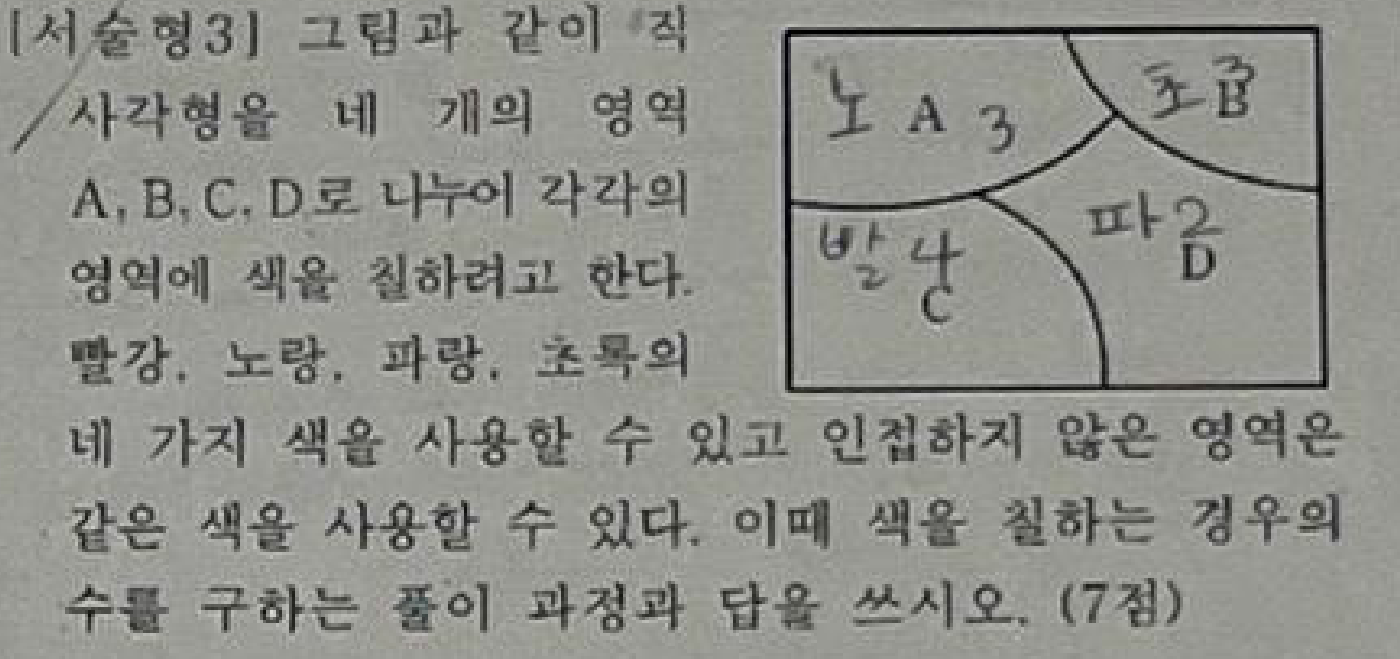 [서술형3] 그림과 같이 직
사각형을 네 개의 영역
A, B, C, D로 나누어 각각의
영역에 색을 칠하려고 한다.
빨강, 노랑, 파랑, 초록의
네 가지 색을 사용할 수 있고 인접하지 않은 영역은
같은 색을 사용할 수 있다. 이때 색을 칠하는 경우의
수를 구하는 풀이 과정과 답을 쓰시오. (7점)
노 A 3
초 3
B
빨 4
C
파 2
D